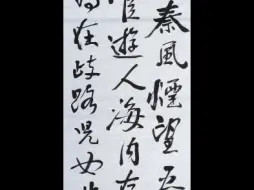 秦風煙望五
宦遊人海内存
為在歧路兒女共